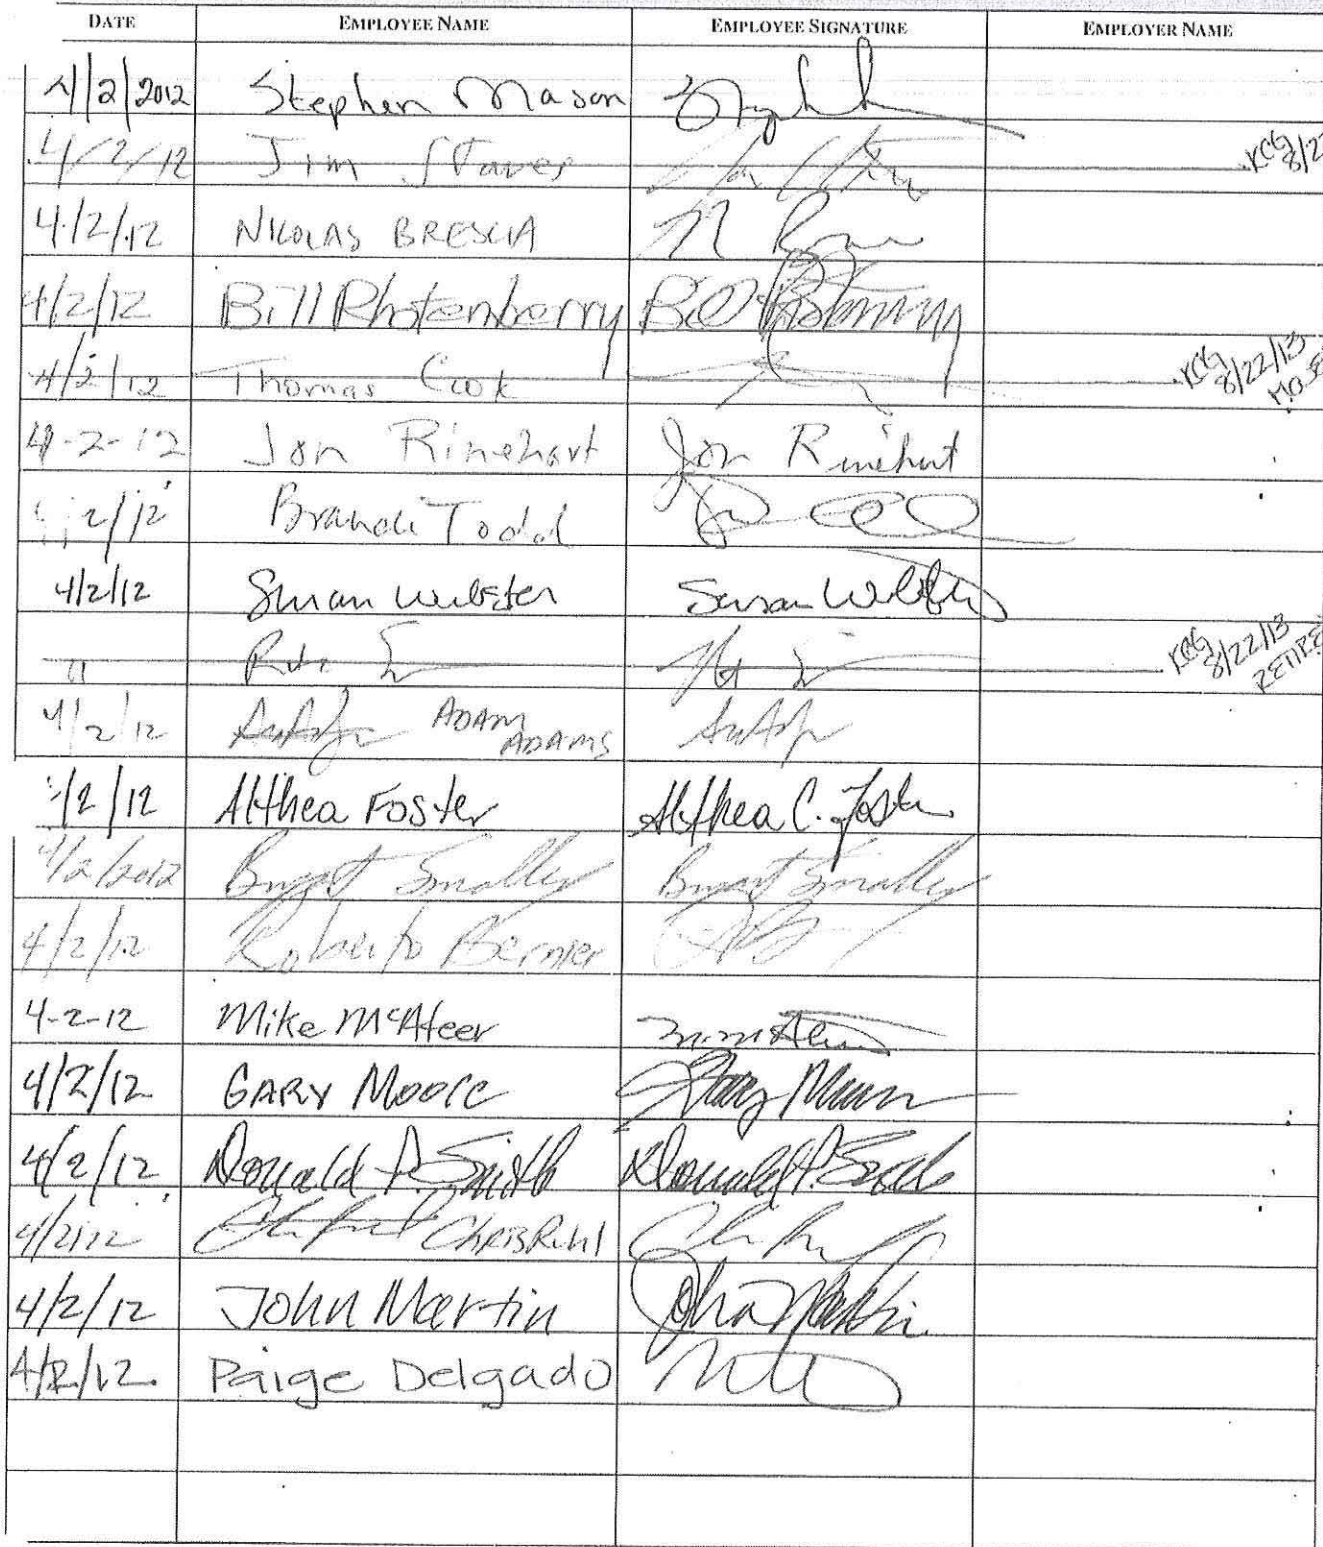 DATE EMPLOYEE NAME EMPLOYEE SIGNATURE EMPLOYER NAME
4/2/2012 Stephen Mason
4/2/12 Jim Staves KCG 8/22
4/2/12 NIKOLAS BRESCIA
4/2/12 Bill Rhotenberry Bill Rhotenberry
4/2/12 Thomas Cook KCG 8/22/13
4-2-12 Jon Rinehart Jon Rinehart
2/12 Brandi Todd
4/2/12 Susan Webster Susan Webster
" KCG 8/22/13 RETIRE
4/2/12 ADAM ADAMS
/2/12 Althea Foster Althea C. Foster
4/2/2012 Bryant Smalley Bryant Smalley
4/2/12 Roberto Bernier
4-2-12 Mike McAteer
4/2/12 GARY MOORE Gary Moore
4/2/12 Donald P. Smith Donald P. Smith
4/2/12 Chris Ruhl
4/2/12 John Martin John Martin
4/2/12. Paige Delgado